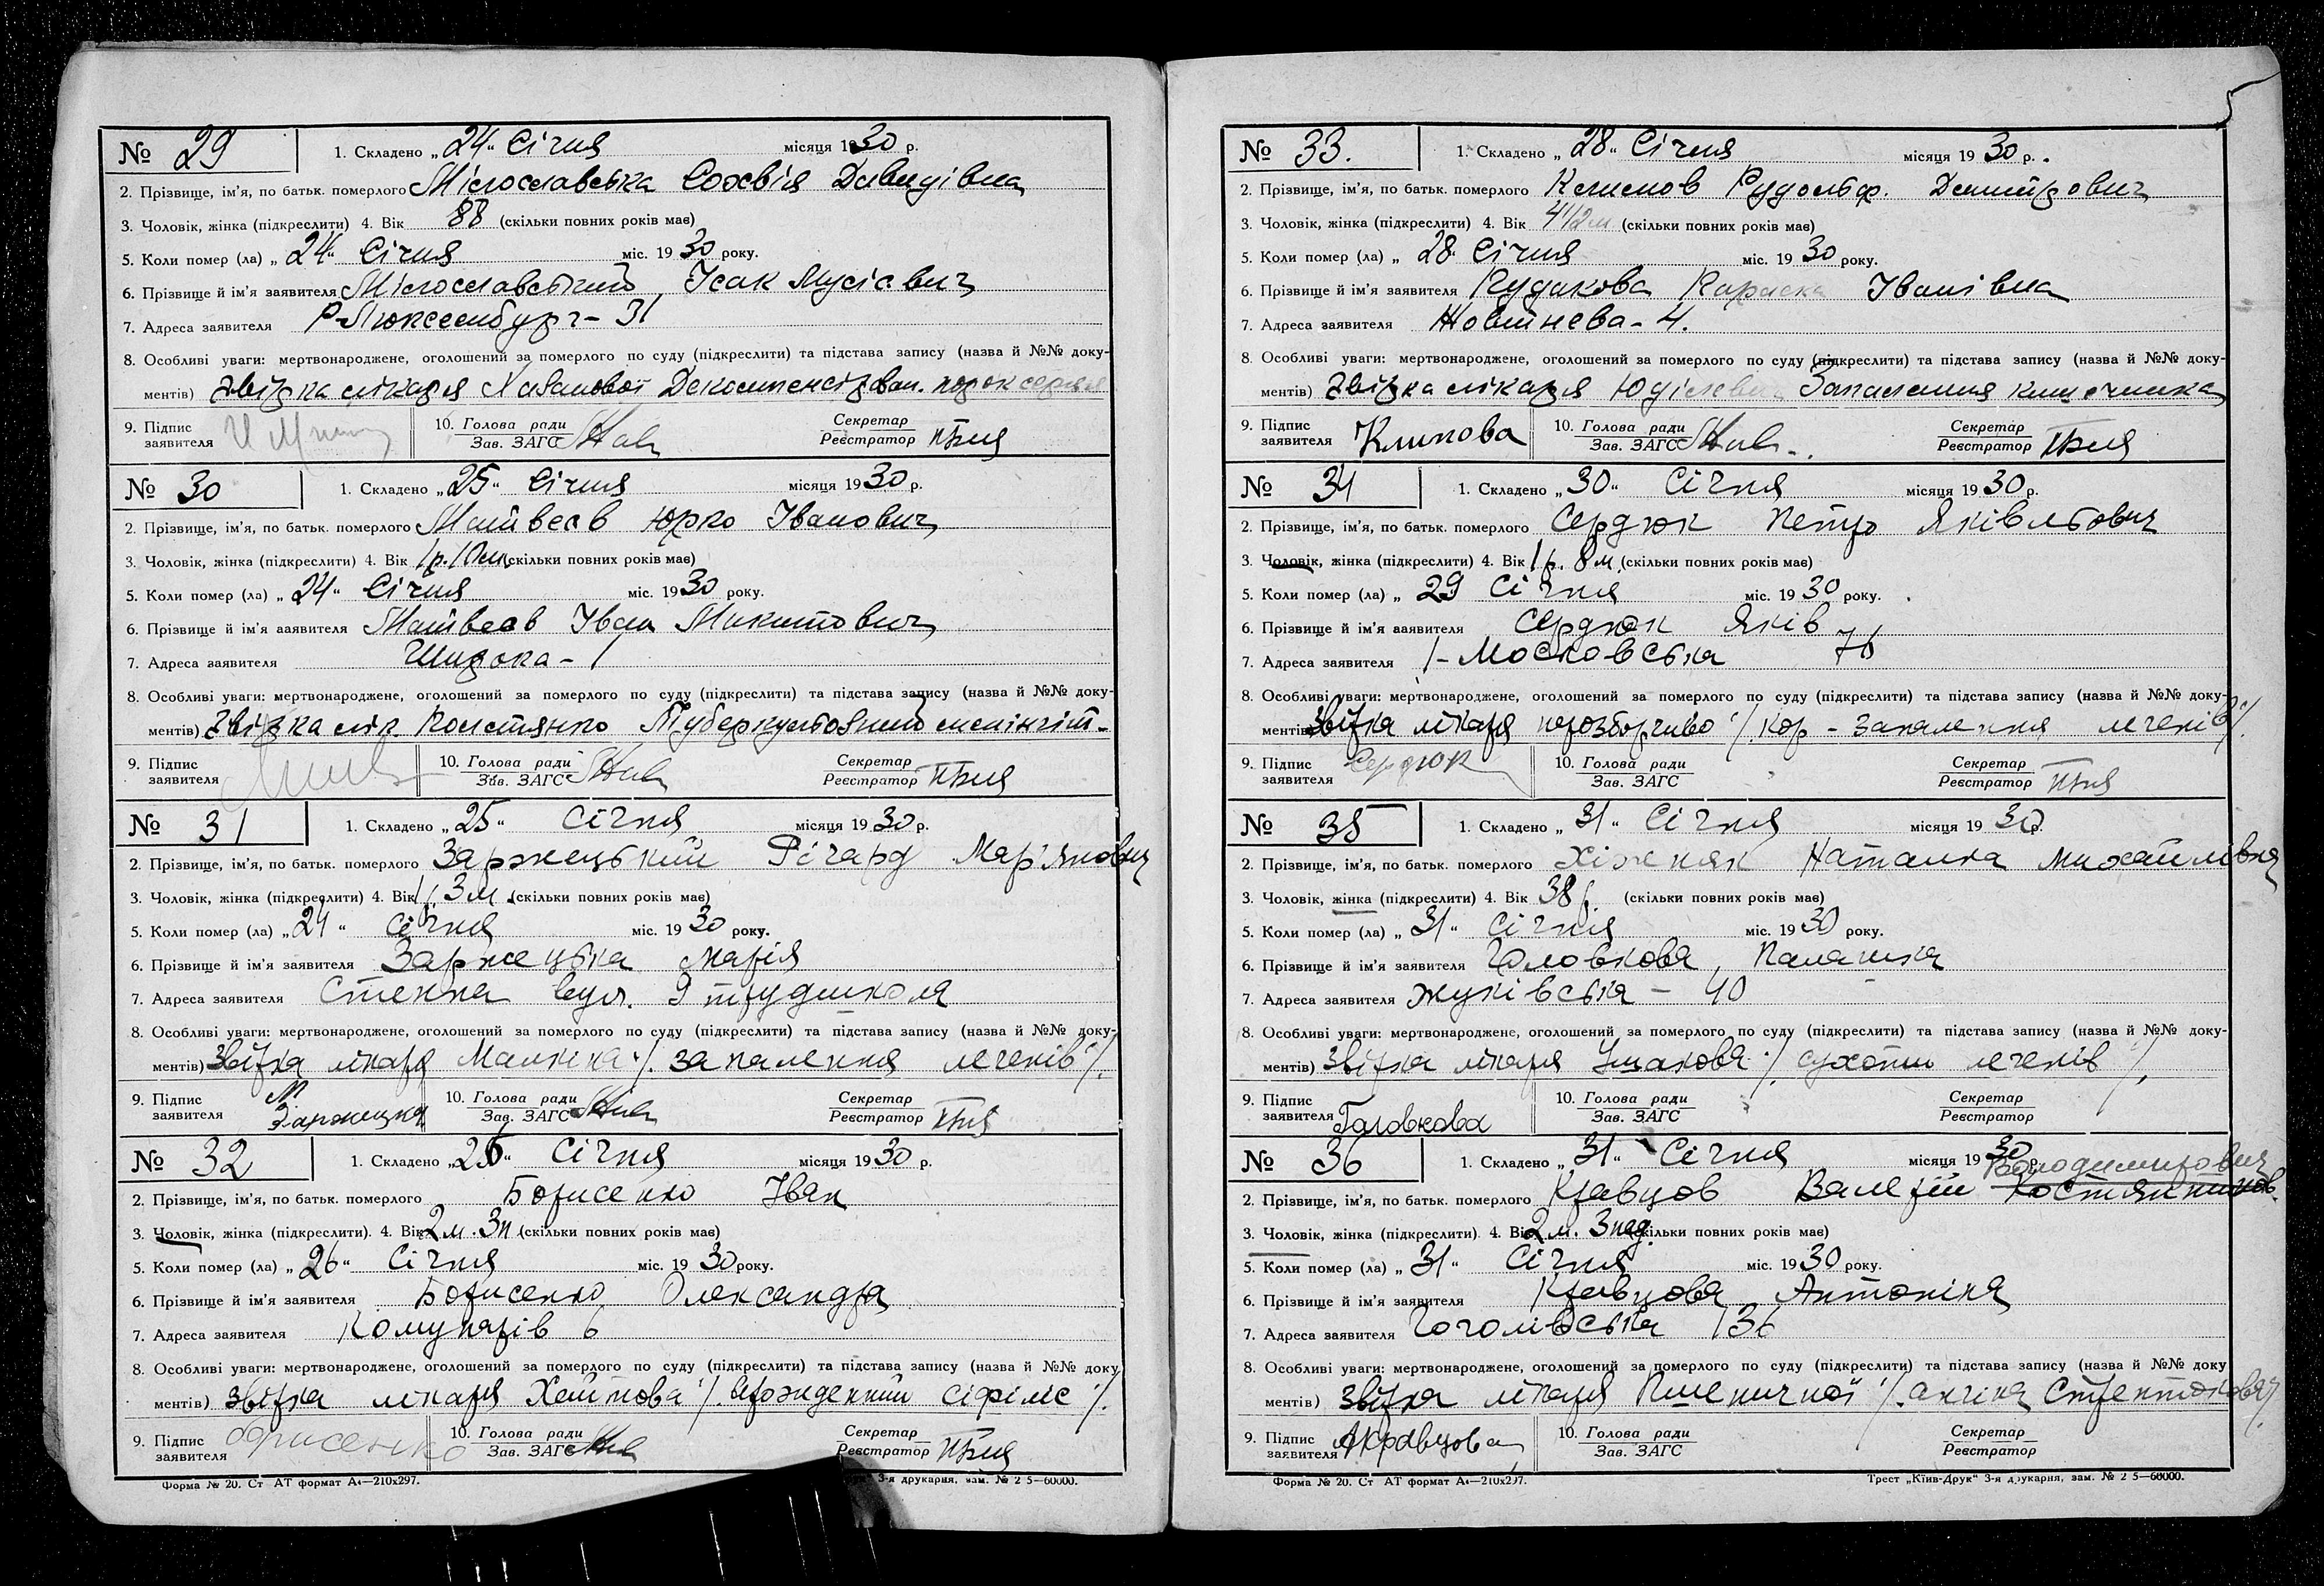 № 29
1. Складено „24“ Січня місяця 1930 р.
2. Прізвище, ім'я, по батьк. померлого Мілославська Софвія Давидівна
3. Чоловік, жінка (підкреслити) 4. Вік 88 (скільки повних років має)
5. Коли помер (ла) „24“ Січня міс. 1930 року.
6. Прізвище й ім'я заявителя Мілославський Ісак Мусієвич
7. Адреса заявителя Р-Люксембург - 31
8. Особливі уваги: мертвонароджене, оголошений за померлого по суду (підкреслити) та підстава запису (назва й №№ доку-
ментів) Звідка лікаря Декомпенсірован. порок сердця
9. Підпис заявителя
10. Голова ради Зав. ЗАГС
Секретар Реєстратор
№ 30
1. Складено „25“ Січня місяця 1930 р.
2. Прізвище, ім'я, по батьк. померлого Матвеєв Юрко Іванович
3. Чоловік, жінка (підкреслити) 4. Вік 1р. 10м. (скільки повних років має)
5. Коли помер (ла) „24“ Січня міс. 1930 року.
6. Прізвище й ім'я заявителя Матвеєв Іван Микитович
7. Адреса заявителя Широка - 1
8. Особливі уваги: мертвонароджене, оголошений за померлого по суду (підкреслити) та підстава запису (назва й №№ доку-
ментів) Звідка лік. Туберкульозний менінгіт-
9. Підпис заявителя
10. Голова ради Зав. ЗАГС
Секретар Реєстратор
№ 31
1. Складено „25“ Січня місяця 1930 р.
2. Прізвище, ім'я, по батьк. померлого Заржецький Річард Мар'янович
3. Чоловік, жінка (підкреслити) 4. Вік 1р. 3м. (скільки повних років має)
5. Коли помер (ла) „24“ Січня міс. 1930 року.
6. Прізвище й ім'я заявителя Заржецька Марія
7. Адреса заявителя Степна вул. 9 трудшкола
8. Особливі уваги: мертвонароджене, оголошений за померлого по суду (підкреслити) та підстава запису (назва й №№ доку-
ментів) Звідка лікаря Малкіна ·/. запалення легенів ·/.
9. Підпис заявителя М Заржецка
10. Голова ради Зав. ЗАГС
Секретар Реєстратор
№ 32
1. Складено „26“ Січня місяця 1930 р.
2. Прізвище, ім'я, по батьк. померлого Борисенко Іван
3. Чоловік, жінка (підкреслити). 4. Вік 2м. 3н (скільки повних років має)
5. Коли помер (ла) „26“ Січня міс. 1930 року.
6. Прізвище й ім'я заявителя Борисенко Олександра
7. Адреса заявителя Комунарів 6
8. Особливі уваги: мертвонароджене, оголошений за померлого по суду (підкреслити) та підстава запису (назва й №№ доку
ментів) Звідка лікаря врожденний сіфіліс ·/.
9. Підпис заявителя Борисенко
10. Голова ради Зав. ЗАГС
Секретар Реєстратор
Форма № 20. Ст АТ формат А4—210х297.
3-я друкарня, зам. № 2 5—60000.
№ 33.
1. Складено „28“ Січня місяця 1930 р.
2. Прізвище, ім'я, по батьк. померлого Климов Рудольф. Дмитрович
3. Чоловік, жінка (підкреслити) 4. Вік 4 1/2 м (скільки повних років має)
5. Коли помер (ла) „28“ Січня міс. 1930 року.
6. Прізвище й ім'я заявителя Кудакова Іванівна
7. Адреса заявителя Жовтнева - 4.
8. Особливі уваги: мертвонароджене, оголошений за померлого по суду (підкреслити) та підстава запису (назва й №№ доку-
ментів) Звідка лікаря Запалення кишечника
9. Підпис заявителя Климова
10. Голова ради Зав. ЗАГС
Секретар Реєстратор
№ 34
1. Складено „30“ Січня місяця 1930 р.
2. Прізвище, ім'я, по батьк. померлого Сердюк Петро Яківльович
3. Чоловік, жінка (підкреслити) 4. Вік 1р. 8м. (скільки повних років має)
5. Коли помер (ла) „29 Січня міс. 1930 року.
6. Прізвище й ім'я заявителя Сердюк Яків
7. Адреса заявителя 1- Московська 76
8. Особливі уваги: мертвонароджене, оголошений за померлого по суду (підкреслити) та підстава запису (назва й №№ доку-
ментів) Звідка лікаря нерозбірчиво ·/. кор - запалення легенів ·/.
9. Підпис заявителя Сердюк
10. Голова ради Зав. ЗАГС
Секретар Реєстратор
№ 35
1. Складено „31“ Січня місяця 1930 р.
2. Прізвище, ім'я, по батьк. померлого Хіженяк Наталка Михайлівна
3. Чоловік, жінка (підкреслити) 4. Вік 38 р. (скільки повних років має)
5. Коли помер (ла) „31“ Січня міс. 1930 року.
6. Прізвище й ім'я заявителя Головкова, Палашка
7. Адреса заявителя Жуківська - 40
8. Особливі уваги: мертвонароджене, оголошений за померлого по суду (підкреслити) та підстава запису (назва й №№ доку-
ментів) Звідка лікаря Ушакова ·/. сухоти легенів ·/.
9. Підпис заявителя Головкова
10. Голова ради Зав. ЗАГС
Секретар Реєстратор
№ 36
1. Складено „31“ Січня місяця 1930 р.
Володимирович
2. Прізвище, ім'я, по батьк. померлого Кравцов Валерій Костянтинов.
3. Чоловік, жінка (підкреслити) 4. Вік 2м. 3нед. (скільки повних років має)
5. Коли помер (ла) „31“ Січня міс. 1930 року.
6. Прізвище й ім'я заявителя Кравцова Антоніна
7. Адреса заявителя Гоголівська 136
8. Особливі уваги: мертвонароджене, оголошений за померлого по суду (підкреслити) та підстава запису (назва й №№ доку
ментів) Звідка лікаря Пшеничної ·/. ангіна Стрептокова ·/.
9. Підпис заявителя АКравцова
10. Голова ради Зав. ЗАГС
Секретар Реєстратор
Форма № 20. Ст АТ формат А4—210х297.
Трест „Київ-Друк“ 3-я друкарня, зам. № 2 5—60000.